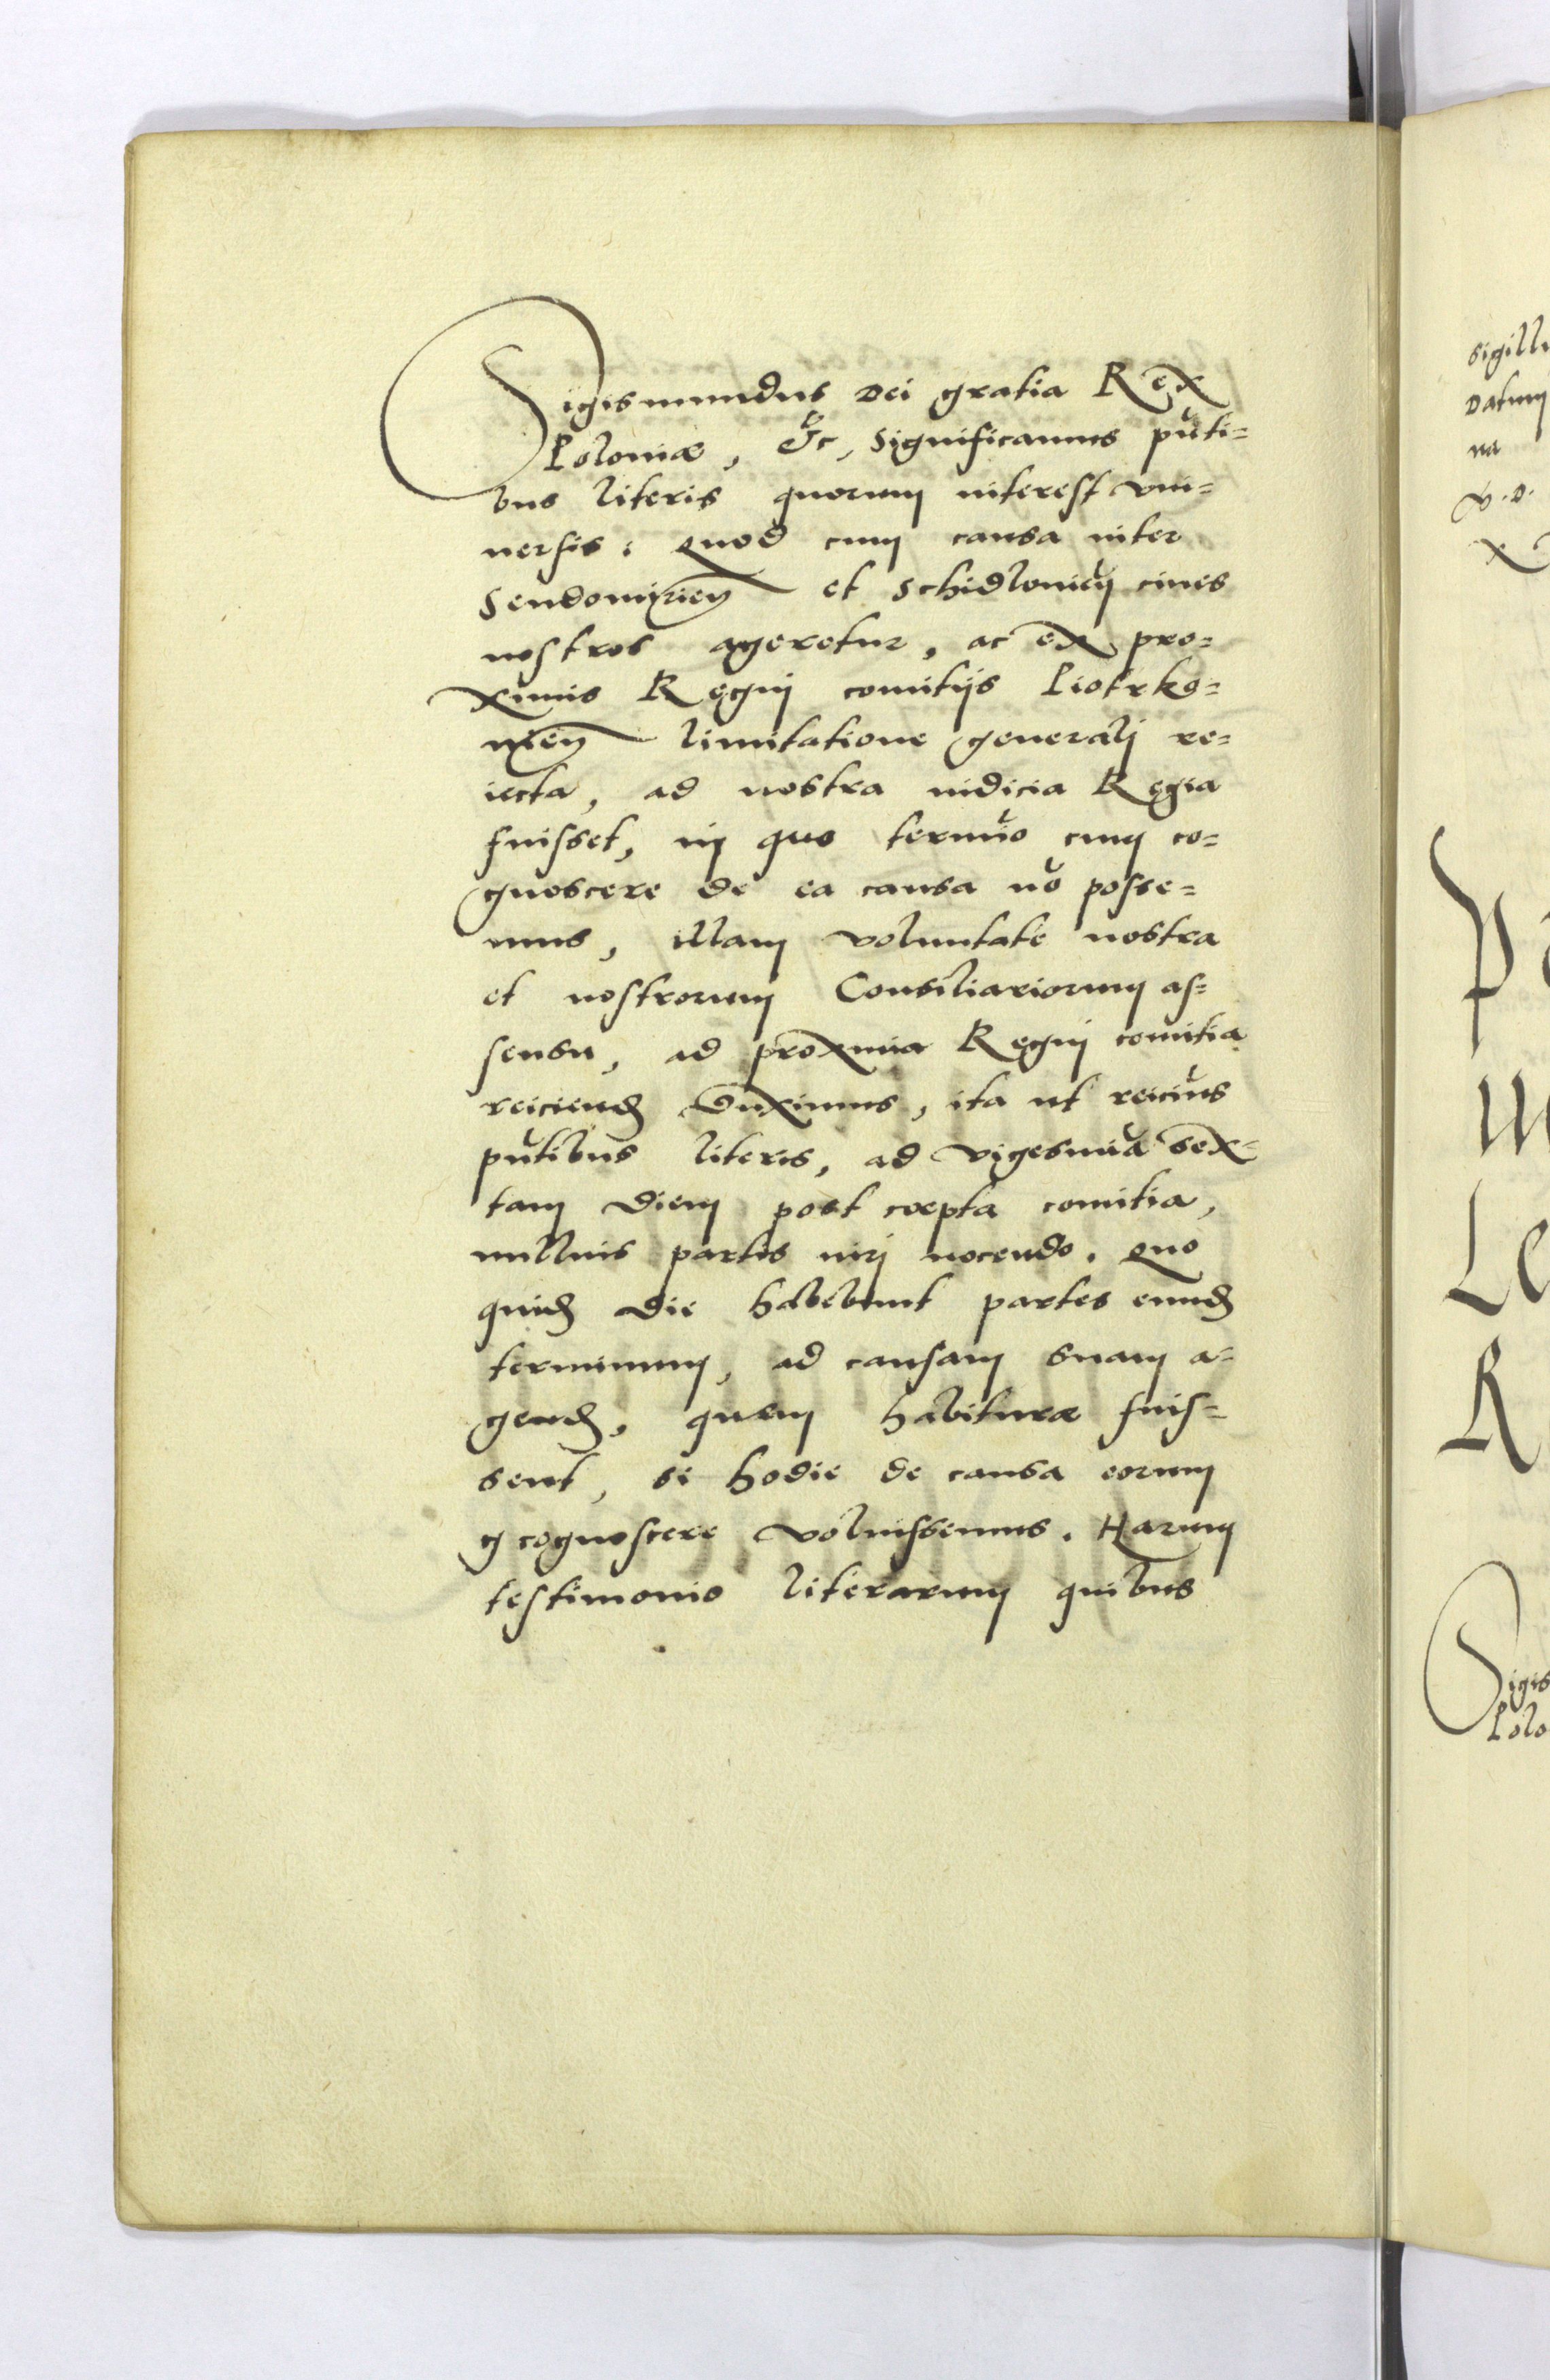 Sigismundus Dei gratia Rex
Poloniæ, &c, Significamus pñti=
bus literis quorum interest vni=
uersis: Quod cum causa inter
Sendomirien et Schidlouien ciues
nostros ageretur, ac ex pro=
ximis Regni comitijs Piotrko=
uien limitatione generali re=
iecta, ad nostra iudicia Regia
fuisset, in quo termño cum co=
gnoscere de ea causa nõ posse=
mus, illam voluntate nostra
et nostrorum Consiliariorum as=
sensu, ad proxima Regni comitia
reiciend duximus, ita ut reicim̃s
pñtibus literis, ad vigesimã sex=
tam diem post cœpta comitia,
nullius partis iuri nocendo. Quo
quid die habebunt partes eund
terminum, ad causam suam a=
gend, quem habituræ fuis=
sent, si hodie de causa eorum
cognoscere voluissemus. Harum
testimonio literarum quibus
sigillu
Datum
na
V.D.
Le
R
Sigis
Polo